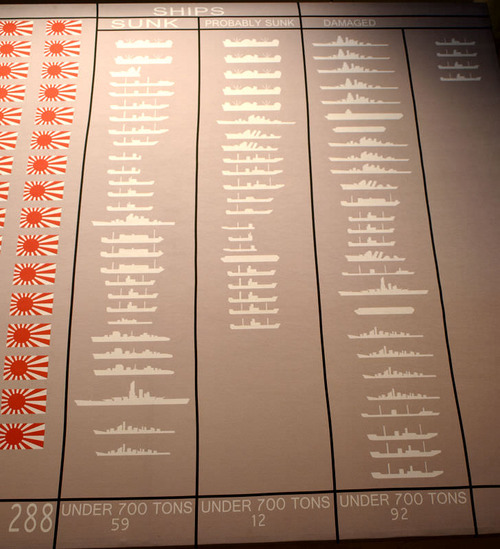 SHIPS
SUNK PROBABLY SUNK DAMAGED
288 UNDER 700 TONS UNDER 700 TONS UNDER 700 TONS
59 12 92